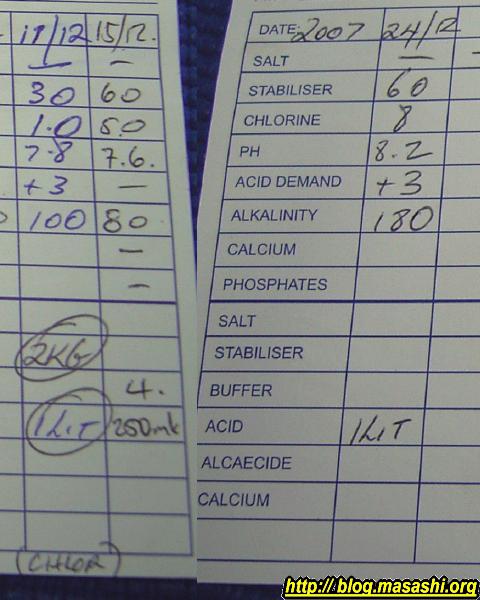 11/12 15/12.
— —
30 60
1.0 5.0
7.8 7.6.
+3 —
100 80
—
—
2KG
4.
1LIT 250ml
(CHLOR)
DATE: 2007 24/12
SALT —
STABILISER 60
CHLORINE 8
PH 8.2
ACID DEMAND +3
ALKALINITY 180
CALCIUM
PHOSPHATES
SALT
STABILISER
BUFFER
ACID 1LIT
ALCAECIDE
CALCIUM
http://blog.masashi.org